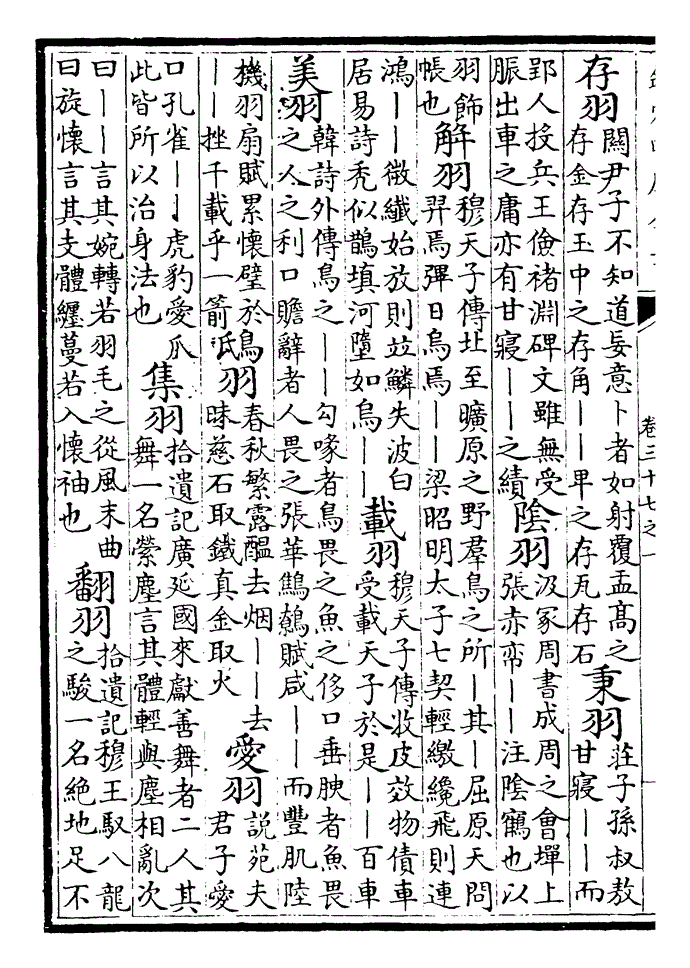 存羽關尹子不知道妄意卜者如射覆盂髙之存金存玉中之存角丨丨卑之存瓦存石秉羽莊子孫叔敖甘寝丨丨而
郢人投兵王儉褚淵碑文雖無受脤出車之庸亦有甘寝丨丨之績陰羽汲冢周書成周之會墠上張赤帟丨丨注陰鶴也以
羽飾帳也解羽穆天子傳北至曠原之野羣鳥之所丨其丨屈原天問羿焉彈日烏焉丨丨梁昭明太子七契輕繳纔飛則連
鴻丨丨微纎始放則竝鱗失波白居易詩秃似鵲填河墮如烏丨丨載羽穆天子傳收皮效物債車受載天子於是丨丨百車
美羽韓詩外傳鳥之丨丨勾喙者鳥畏之魚之侈口垂腴者魚畏之人之利口贍辭者人畏之張華鷦鷯賦咸丨丨而豐肌陸
機羽扇賦累懷璧於丨丨挫千載乎一箭鴟羽春秋繁露醖去烟丨丨去昧慈石取鐵真金取火愛羽說苑夫君子愛
口孔雀丨丨虎豹愛爪此皆所以治身法也集羽拾遺記廣延國來獻善舞者二人其舞一名縈塵言其體輕與塵相亂次
曰丨丨言其婉轉若羽毛之從風末曲曰旋懷言其支體纒蔓若入懷袖也翻羽拾遺記穆王馭八龍之駿一名絶地足不
卷三十七之一